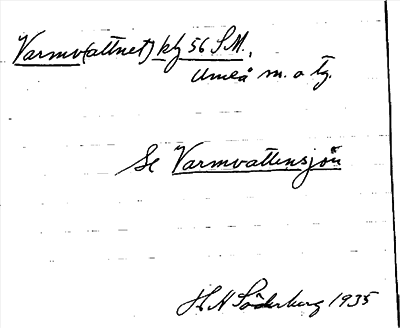 Varmv(attnet) kbf 56 S.M.,
Umeå m. o tg.
Se Varmvattensjön
H Söderberg 1935